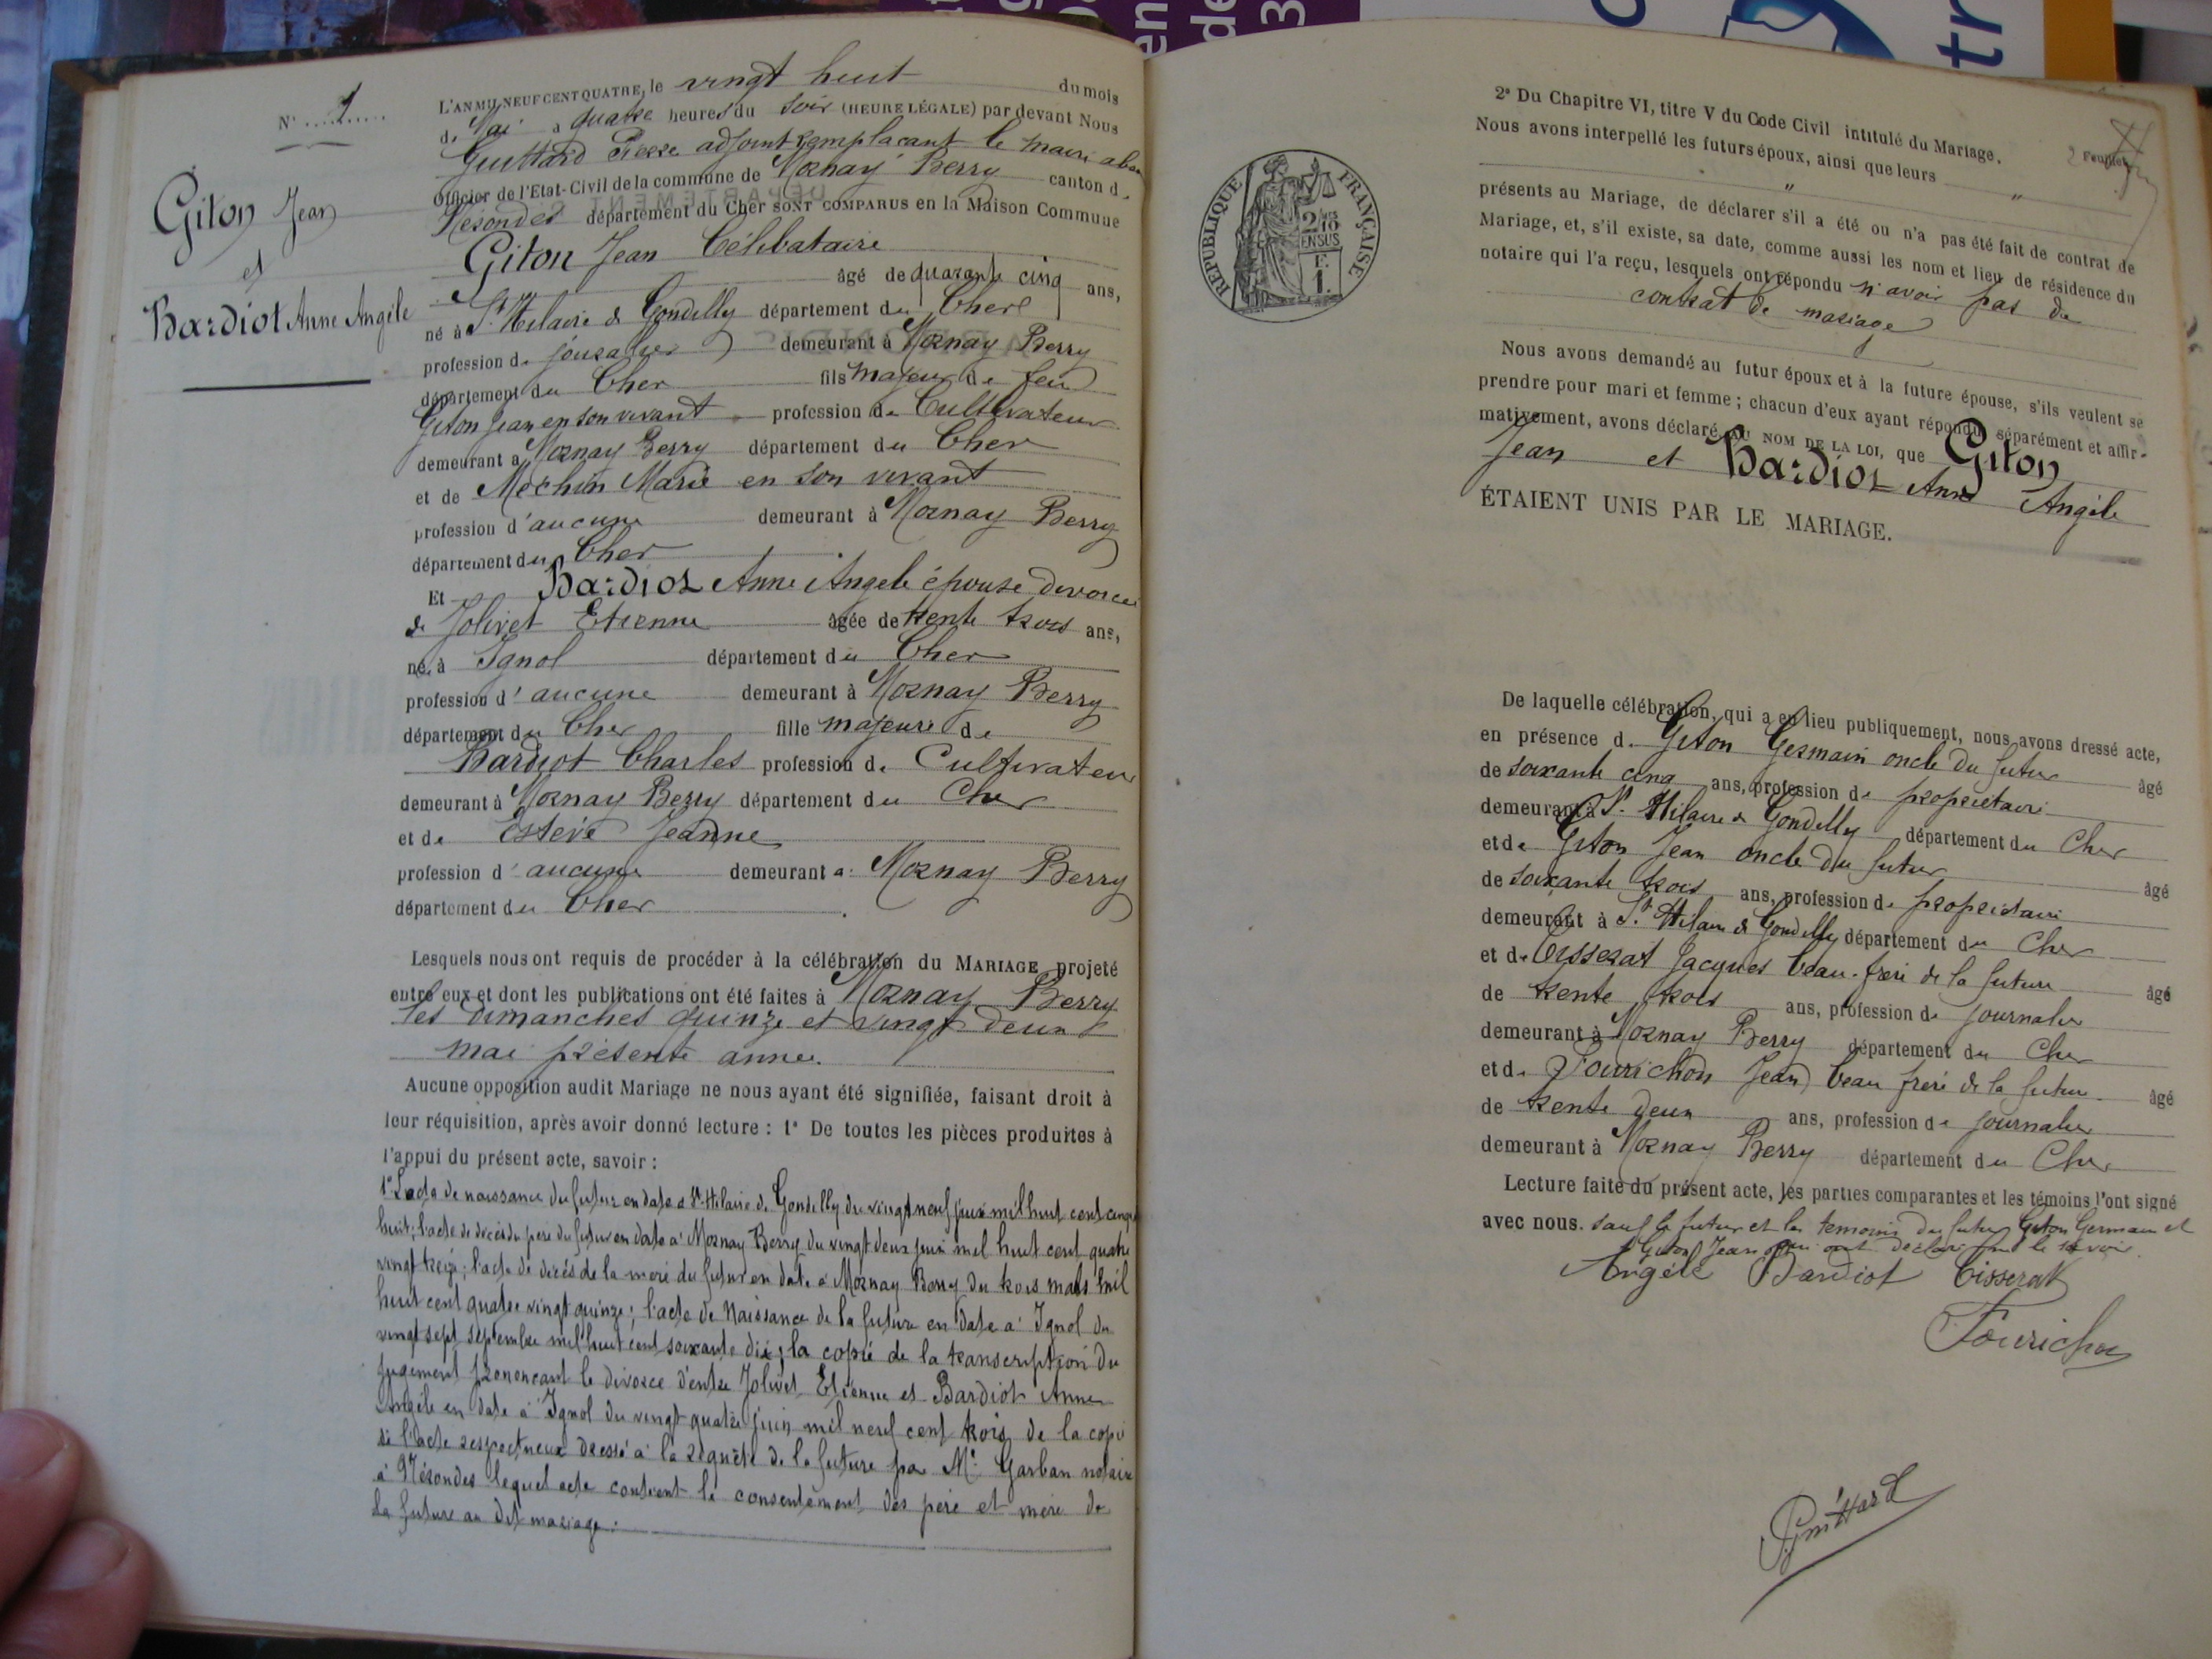 N° 1
Giton Jean
et
Bardiot Anne Angèle
L'AN MIL NEUF CENT QUATRE, le vingt huit du mois
de Mai à quatre heures du soir (HEURE LÉGALE) par devant Nous
Guittard Pierre adjoint remplacant le maire
Officier de l'Etat-Civil de la commune de Mornay Berry canton d.
Nérondes département du Cher SONT COMPARUS en la Maison Commune
Giton Jean Célibataire
âgé de quarante cinq ans,
né à St Hilaire de Gondilly département du Cher
profession de journalier demeurant à Mornay Berry
département du Cher fils majeur de feu
Giton Jean en son vivant profession de Cultivateur
demeurant à Mornay Berry département du Cher
et de Mechin Marie en son vivant
profession d'aucune demeurant à Mornay Berry
département du Cher
Et Bardiot Anne Angele épouse divorcée
de Jolivet Etienne âgée de trente trois ans,
né à Ignol département du Cher
profession d'aucune demeurant à Mornay Berry
département du Cher fille majeure de
Bardiot Charles profession de Cultivateur
demeurant à Mornay Berry département du Cher
et de Estève Jeanne
profession d'aucune demeurant à Mornay Berry
département du Cher
Lesquels nous ont requis de procéder à la célébration du MARIAGE projeté
entre eux et dont les publications ont été faites à Mornay Berry
les dimanches quinze et vingt deux
mai présente année.
Aucune opposition audit Mariage ne nous ayant été signifiée, faisant droit à
leur réquisition, après avoir donné lecture : 1° De toutes les pièces produites à
l'appui du présent acte, savoir :
1° L'acte de naissance du futur en date à St Hilaire de Gondilly du vingt neuf mil huit cent
huit; l'acte de décès du père du futur en date à Mornay Berry du vingt deux juin mil huit cent quatre
vingt treize; l'acte de décès de la mère du futur en date à Mornay Berry du trois mars mil
huit cent quatre vingt quinze; l'acte de Naissance de la future en date à Ignol du
vingt sept septembre mil huit cent soixante dix; la copie de la transcription du
jugement prononcant le divorce d'entre Jolivet Etienne et Bardiot Anne
Angèle en date à Ignol du vingt quatre juin mil neuf cent trois de la copie
de l'acte respectueux dressé à la requête de la future par Me Garban notaire
à Nérondes lequel acte contient le consentement des père et mère de
la future au dit mariage.
2° Du Chapitre VI, titre V du Code Civil intitulé du Mariage.
2 Feuillet
Nous avons interpellé les futurs époux, ainsi que leurs "
"
présents au Mariage, de déclarer s'il a été ou n'a pas été fait de contrat de
Mariage, et, s'il existe, sa date, comme aussi les nom et lieu de résidence du
notaire qui l'a reçu, lesquels ont répondu n'avoir pas de
contrat de mariage
Nous avons demandé au futur époux et à la future épouse, s'ils veulent se
prendre pour mari et femme ; chacun d'eux ayant répondu séparément et affir-
mativement, avons déclaré AU NOM DE LA LOI, que Giton
Jean et Bardiot Anne Angèle
ÉTAIENT UNIS PAR LE MARIAGE.
De laquelle célébration, qui a eu lieu publiquement, nous avons dressé acte,
en présence d. Giton Germain oncle du futur âgé
de soixante cinq ans, profession de propriétaire
demeurant à St Hilaire de Gondilly département du Cher
et de Giton Jean oncle du futur âgé
de soixante trois ans, profession de propriétaire
demeurant à St Hilaire de Gondilly département du Cher
et de Cisserat Jacques beau-frère de la future âgé
de trente trois ans, profession de journalier
demeurant à Mornay Berry département du Cher
et de Fourichon Jean beau frère de la future âgé
de trente deux ans, profession de journalier
demeurant à Mornay Berry département du Cher
Lecture faite du présent acte, les parties comparantes et les témoins l'ont signé
avec nous. sauf le futur et les temoins du futur Giton Germain et
Giton Jean qui ont déclaré ne le savoir.
Angèle Bardiot Cisserat
Fourichon
P. Guittard
RÉPUBLIQUE FRANÇAISE
2/10 ENSUS
F.
1.